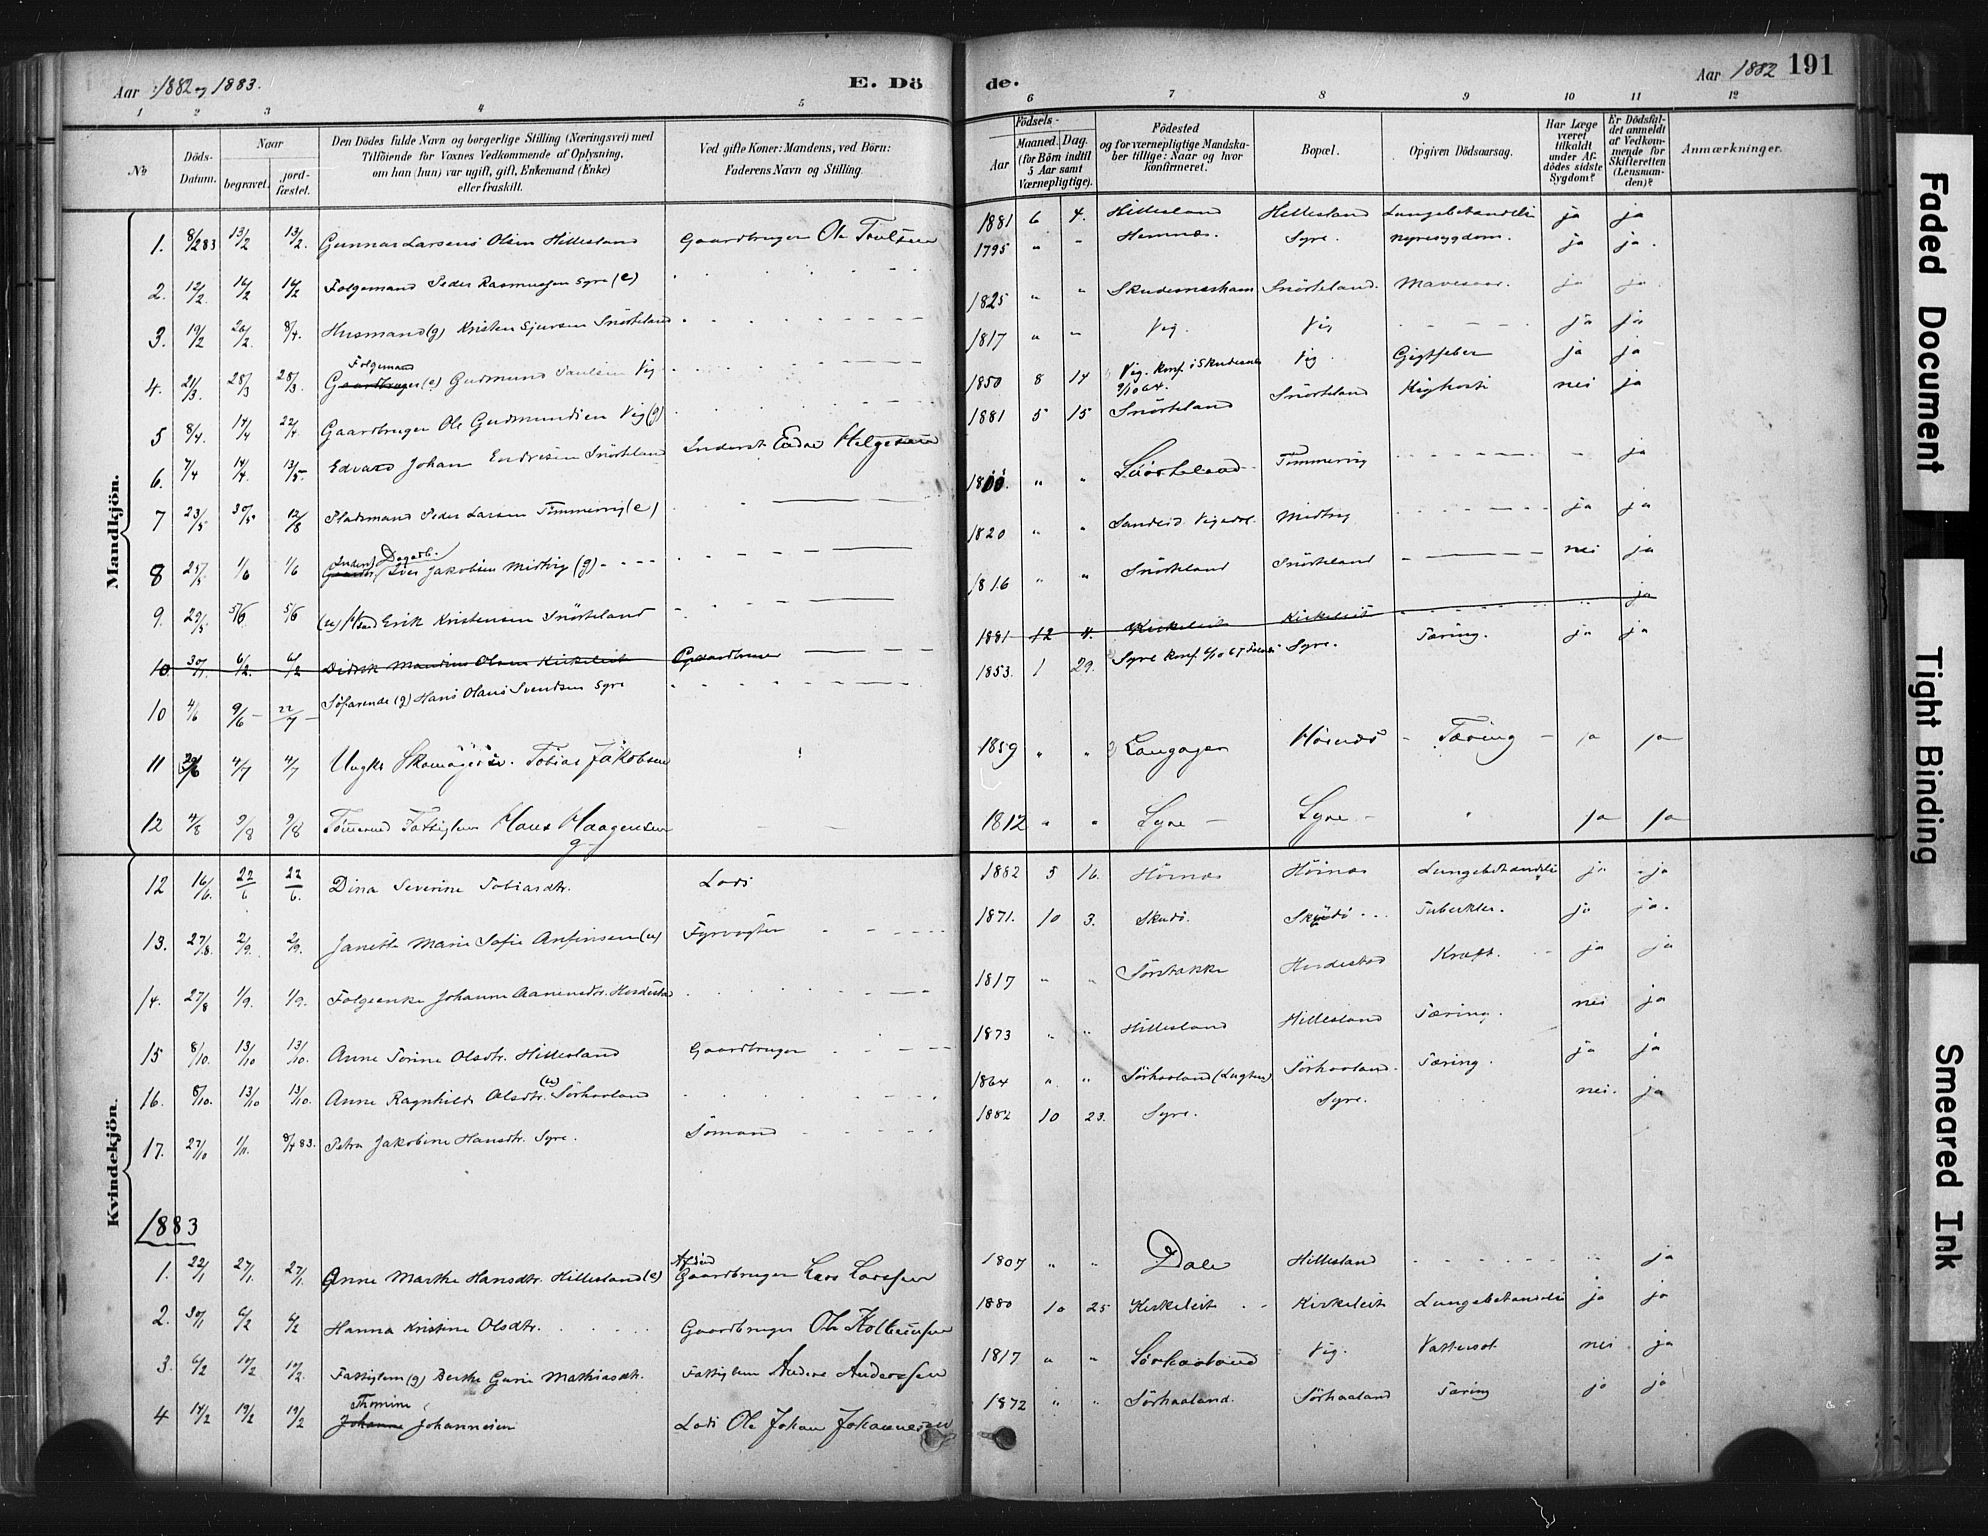 Aar 1882 og 1883.
E. Dö
de.
Aar 1882
191
1 2 3 4 5 6 7 8 9 10 11 12
No
Döds-Datum.
Naar
begravet.
jordfæstet.
Den Dödes fulde Navn og borgerlige Stilling (Næringsvei) med
Tilföiende for Voxnes Vedkommende af Oplysning,
om han (hun) var ugift, gift, Enkemand (Enke)
eller fraskilt.
Ved gifte Koner: Mandens, ved Börn:
Faderens Navn og Stilling.
Födsels-
Aar
Maaned. Dag.
(for Börn indtil
5 Aar samt
Værnepligtige).
Födested
og for værnepligtige Mandskaber tillige: Naar og hvor
konfirmeret.
Bopæl.
Opgiven Dödsaarsag.
Har Læge
været
tilkaldt
under Afdödes sidste
Sygdom?
Er Dödsfaldet anmeldt
af Vedkommende for
Skifteretten
(Lensmanden)?
Anmærkninger.
Mandkjön.
1. 8/2 83 13/2 13/2. Gunnar Larsens Olsen Hillesland Gaardbruger Ole 1881 6 4. Hillesland Hillesland ja ja
2. 12/2. 16/2 16/2 Folgemand Peder Rasmussen Syre (e) 1795 " " Syre. Nyresygdom. ja ja.
3. 19/2 26/2. 8/4. Husmand (g) Kristen Sjursen Snörteland 1825 " " Snörteland. Mavesaar. ja ja
4. 21/3. 28/3 28/3. Folgemand (e) Gudmund Vig 1817 " " Vig. Vig ja ja
5 8/4. 14/4 22/4. Gaardbruger Ole Gudmundsen Vig (g) 1850 8 14 Vig. Konf. i Skudesnes Vig. Gigtfeber ja ja
6. 7/4 14/4. 13/5. Edvard Johan Endresen Snörteland Inderst Endre Helgesen 1881 5 15 Snörteland Snörteland Kighoste nei ja
7 23/5 30/5 12/8 Pladsmand Peder Larsen Timmervig (e) " " Snörteland Timmervig ja
8 25/5 1/6 1/6 Inderst Dagarb. Iver Jakobsen Midtvig (g) 1820 " " Sandeid. Midtvig ja ja
9. 29/5 5/6 5/6 Erik Kristensen Snörteland 1816 " " Snörteland Snörteland nei ja
10 30/1. 6/2. 6/2 Didrik Mandius Olsen Kirkeleit Gaardbruger 1881 12 4. Kirkeleit Kirkeleit ja
10 4/6 9/6 22/7 Söfarende (g) Hans Olaus Svendsen Syre 1853. 1 29. Syre Konf. Syre. Tæring. ja ja
11 4/7 4/7 Ungkr Skomager Tobias Jakobsen 1859 " " Langager Hörnæs Tæring ja ja
12 4/8 9/8 9/8 Fattiglem Hans Haagensen g 1812 " " Syre Syre ja ja
Kvindekjön.
12 16/6. 22/6 22/6. Dina Severine Tobiasdtr. Lods 1882 5 16. Hörnæs Hörnæs ja ja
13. 27/8. 2/9. 2/9. Janette Marie Sofie Anfinsen (u) Fyrvogter 1871. 10 3. Skudö. Skudö Tuberkler. ja ja.
14. 27/8 1/9. 1/9. Folgeenke Johanne 1817 " " Kræft. ja ja
15 8/10. 13/10 13/10. Anne Torine Olsdtr. Hillesland Gaardbruger 1873 " " Hillesland Hillesland Tæring. nei ja
16. 8/10. 13/10 13/10. Anne Ragnhild Olsdtr. (u) Sörhaaland 1864 " " Sörhaaland Sörhaaland. Tæring. ja ja
17. 27/10 1/11. 8/4 83. Petra Jakobine Hansdtr. Syre. Sömand 1882 10 23. Syre. Syre. nei. ja
1883
1. 22/1 27/1. 27/1. Anne Marthe Hansdtr. Hillesland (e) Afdöd Gaardbruger Lars Larssen 1807 " " Dale Hillesland ja
2. 30/1 6/2 6/2 Hanna Kristine Olsdtr. Gaardbruger Ole 1880 10 25 Kirkeleit Kirkeleit ja ja
3. 6/2 10/2 10/2. Fattiglem (g) Berthe Gurie Mathiasdtr. Fattiglem Anders Anderssen 1817 " " Sörhaaland Vig. Vattersot nei ja
4 14/2 19/2 19/2 Thomine Johannesen Lods Ole Johan Johannesen 1872 " " Sörhaaland. Sörhaaland Tæring ja ja
Faded Document
Tight Binding
Smeared Ink